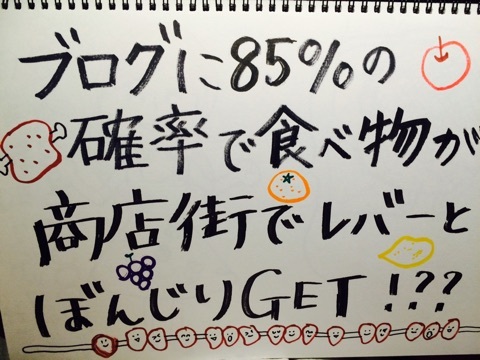 ブログに85%の
確率で食べ物が
商店街でレバーと
ぼんじりGET!??